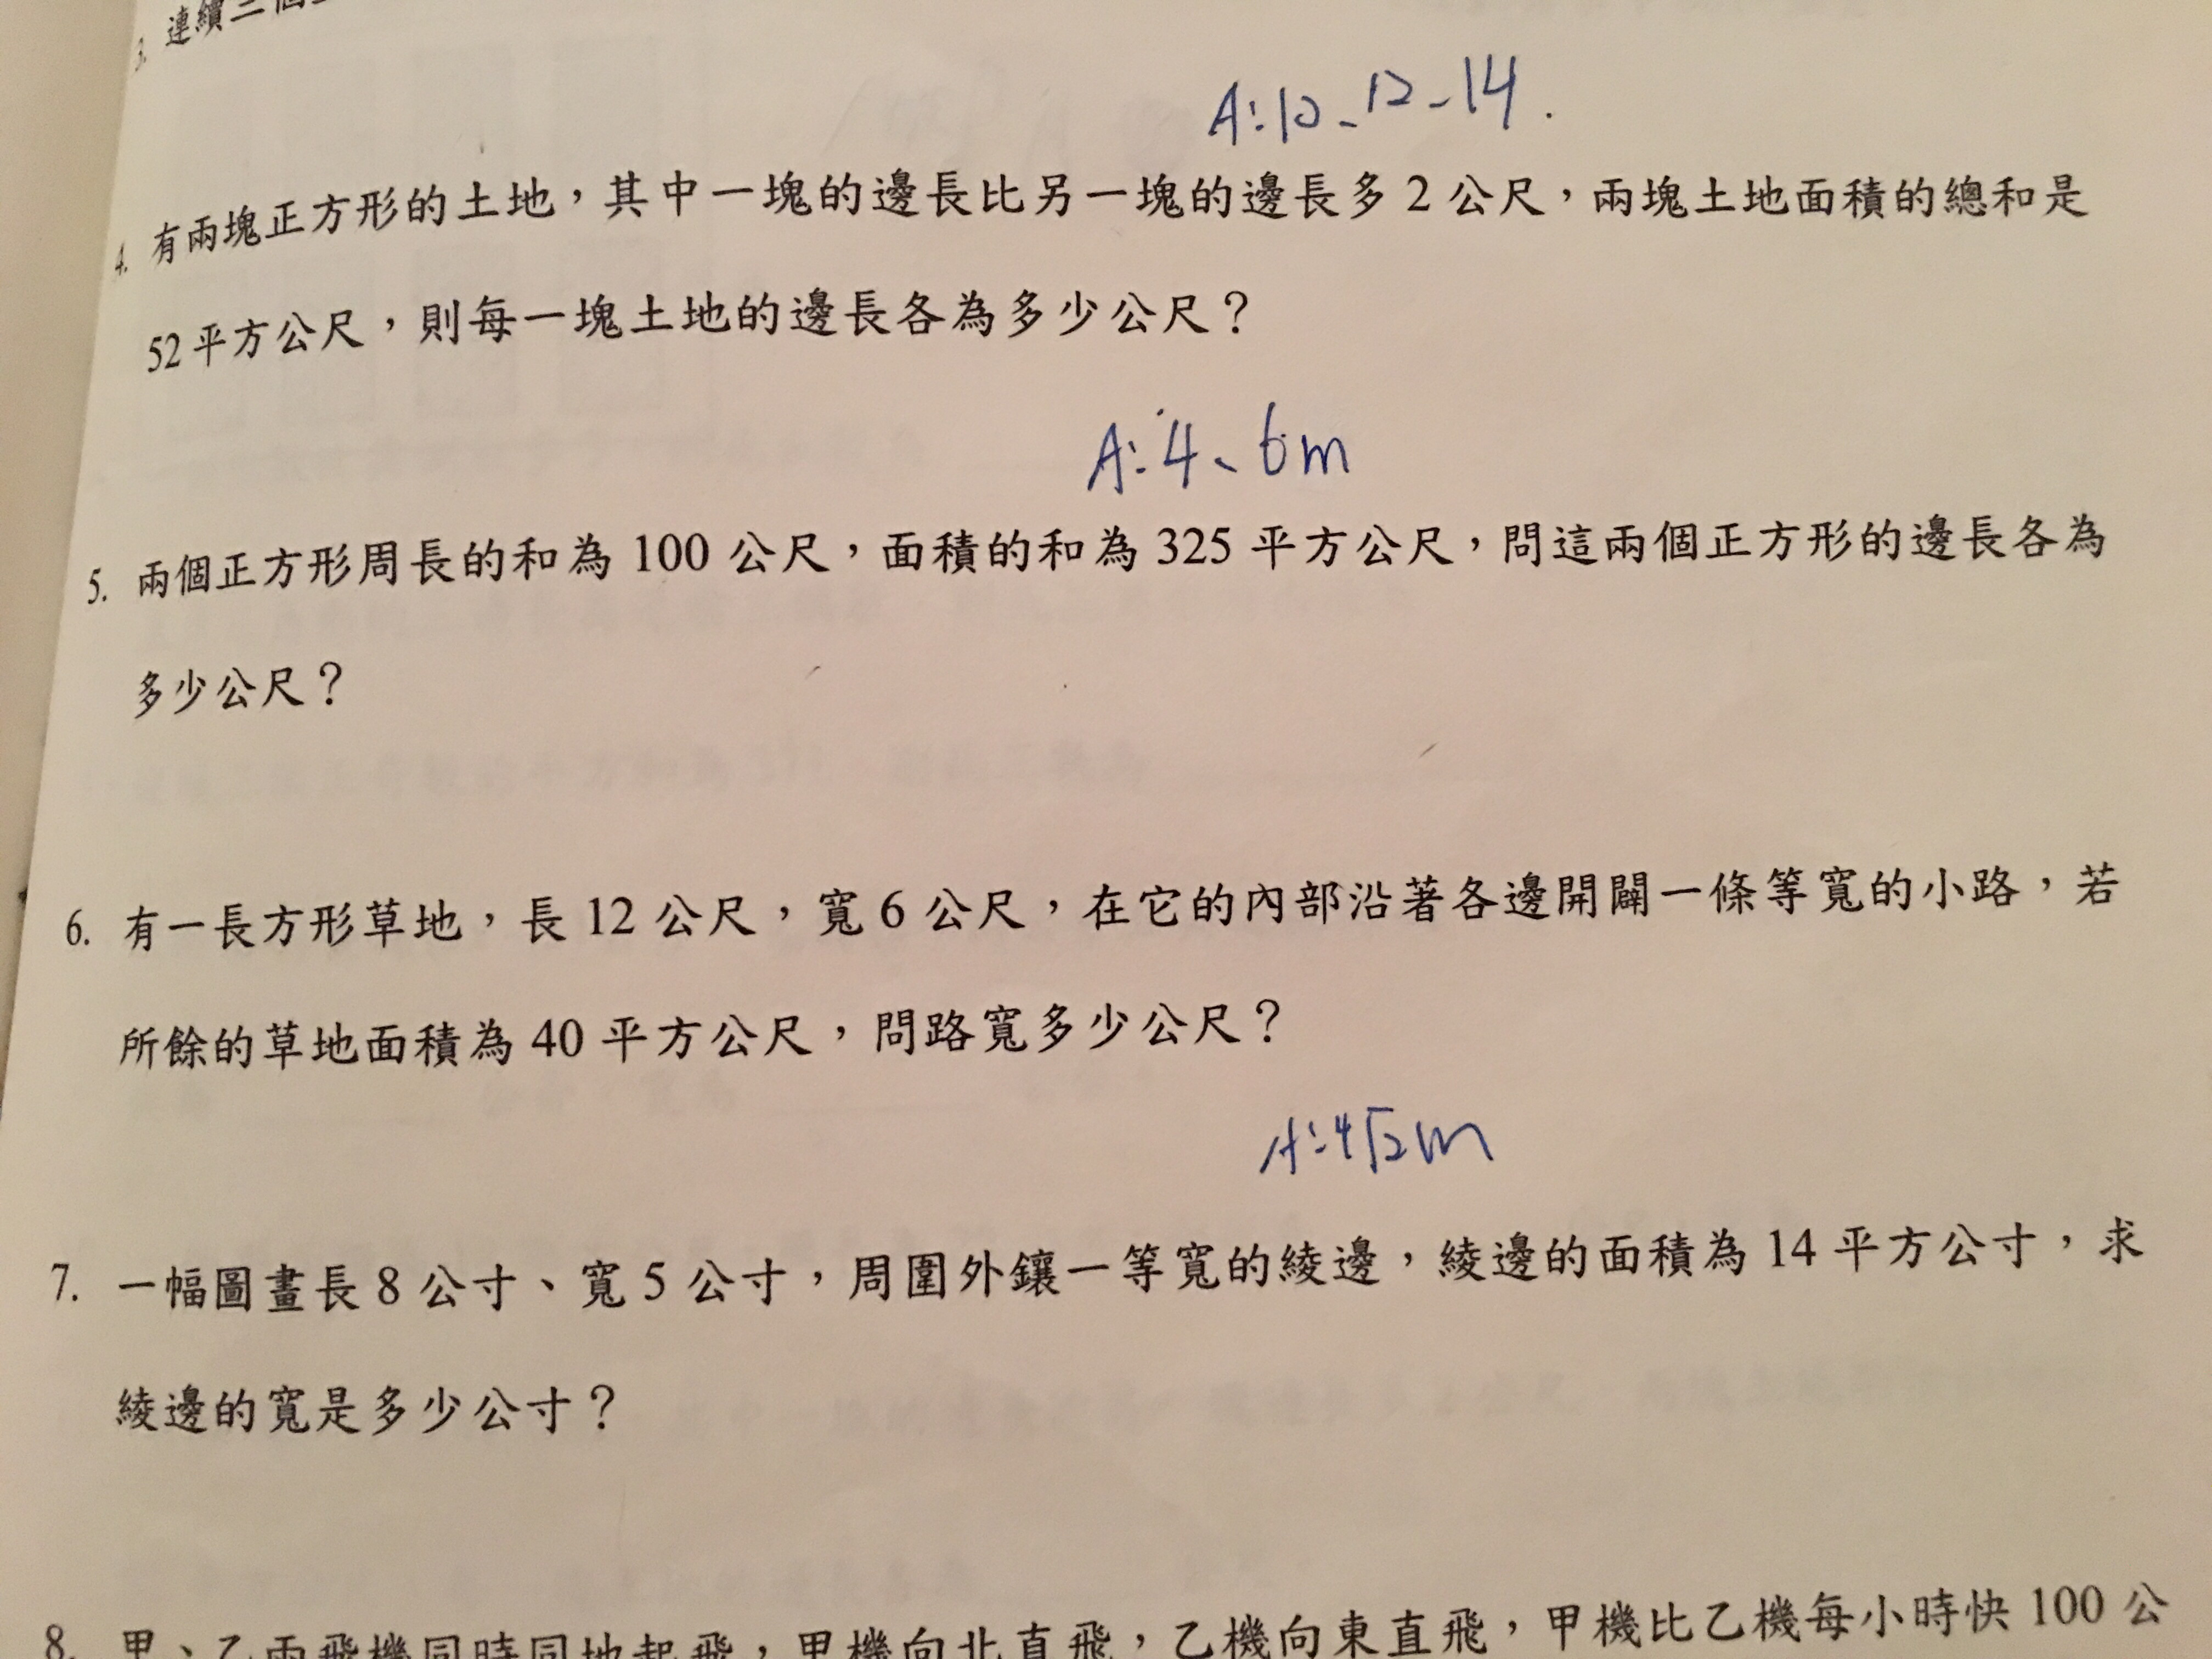 3. 連續三個
A:10、12、14.
4. 有兩塊正方形的土地，其中一塊的邊長比另一塊的邊長多 2 公尺，兩塊土地面積的總和是
52 平方公尺，則每一塊土地的邊長各為多少公尺？
A:4、6m
5. 兩個正方形周長的和為 100 公尺，面積的和為 325 平方公尺，問這兩個正方形的邊長各為
多少公尺？
6. 有一長方形草地，長 12 公尺，寬 6 公尺，在它的內部沿著各邊開闢一條等寬的小路，若
所餘的草地面積為 40 平方公尺，問路寬多少公尺？
A:4√2m
7. 一幅圖畫長 8 公寸、寬 5 公寸，周圍外鑲一等寬的綾邊，綾邊的面積為 14 平方公寸，求
綾邊的寬是多少公寸？
8. 甲、乙兩飛機同時同地起飛，甲機向北直飛，乙機向東直飛，甲機比乙機每小時快 100 公